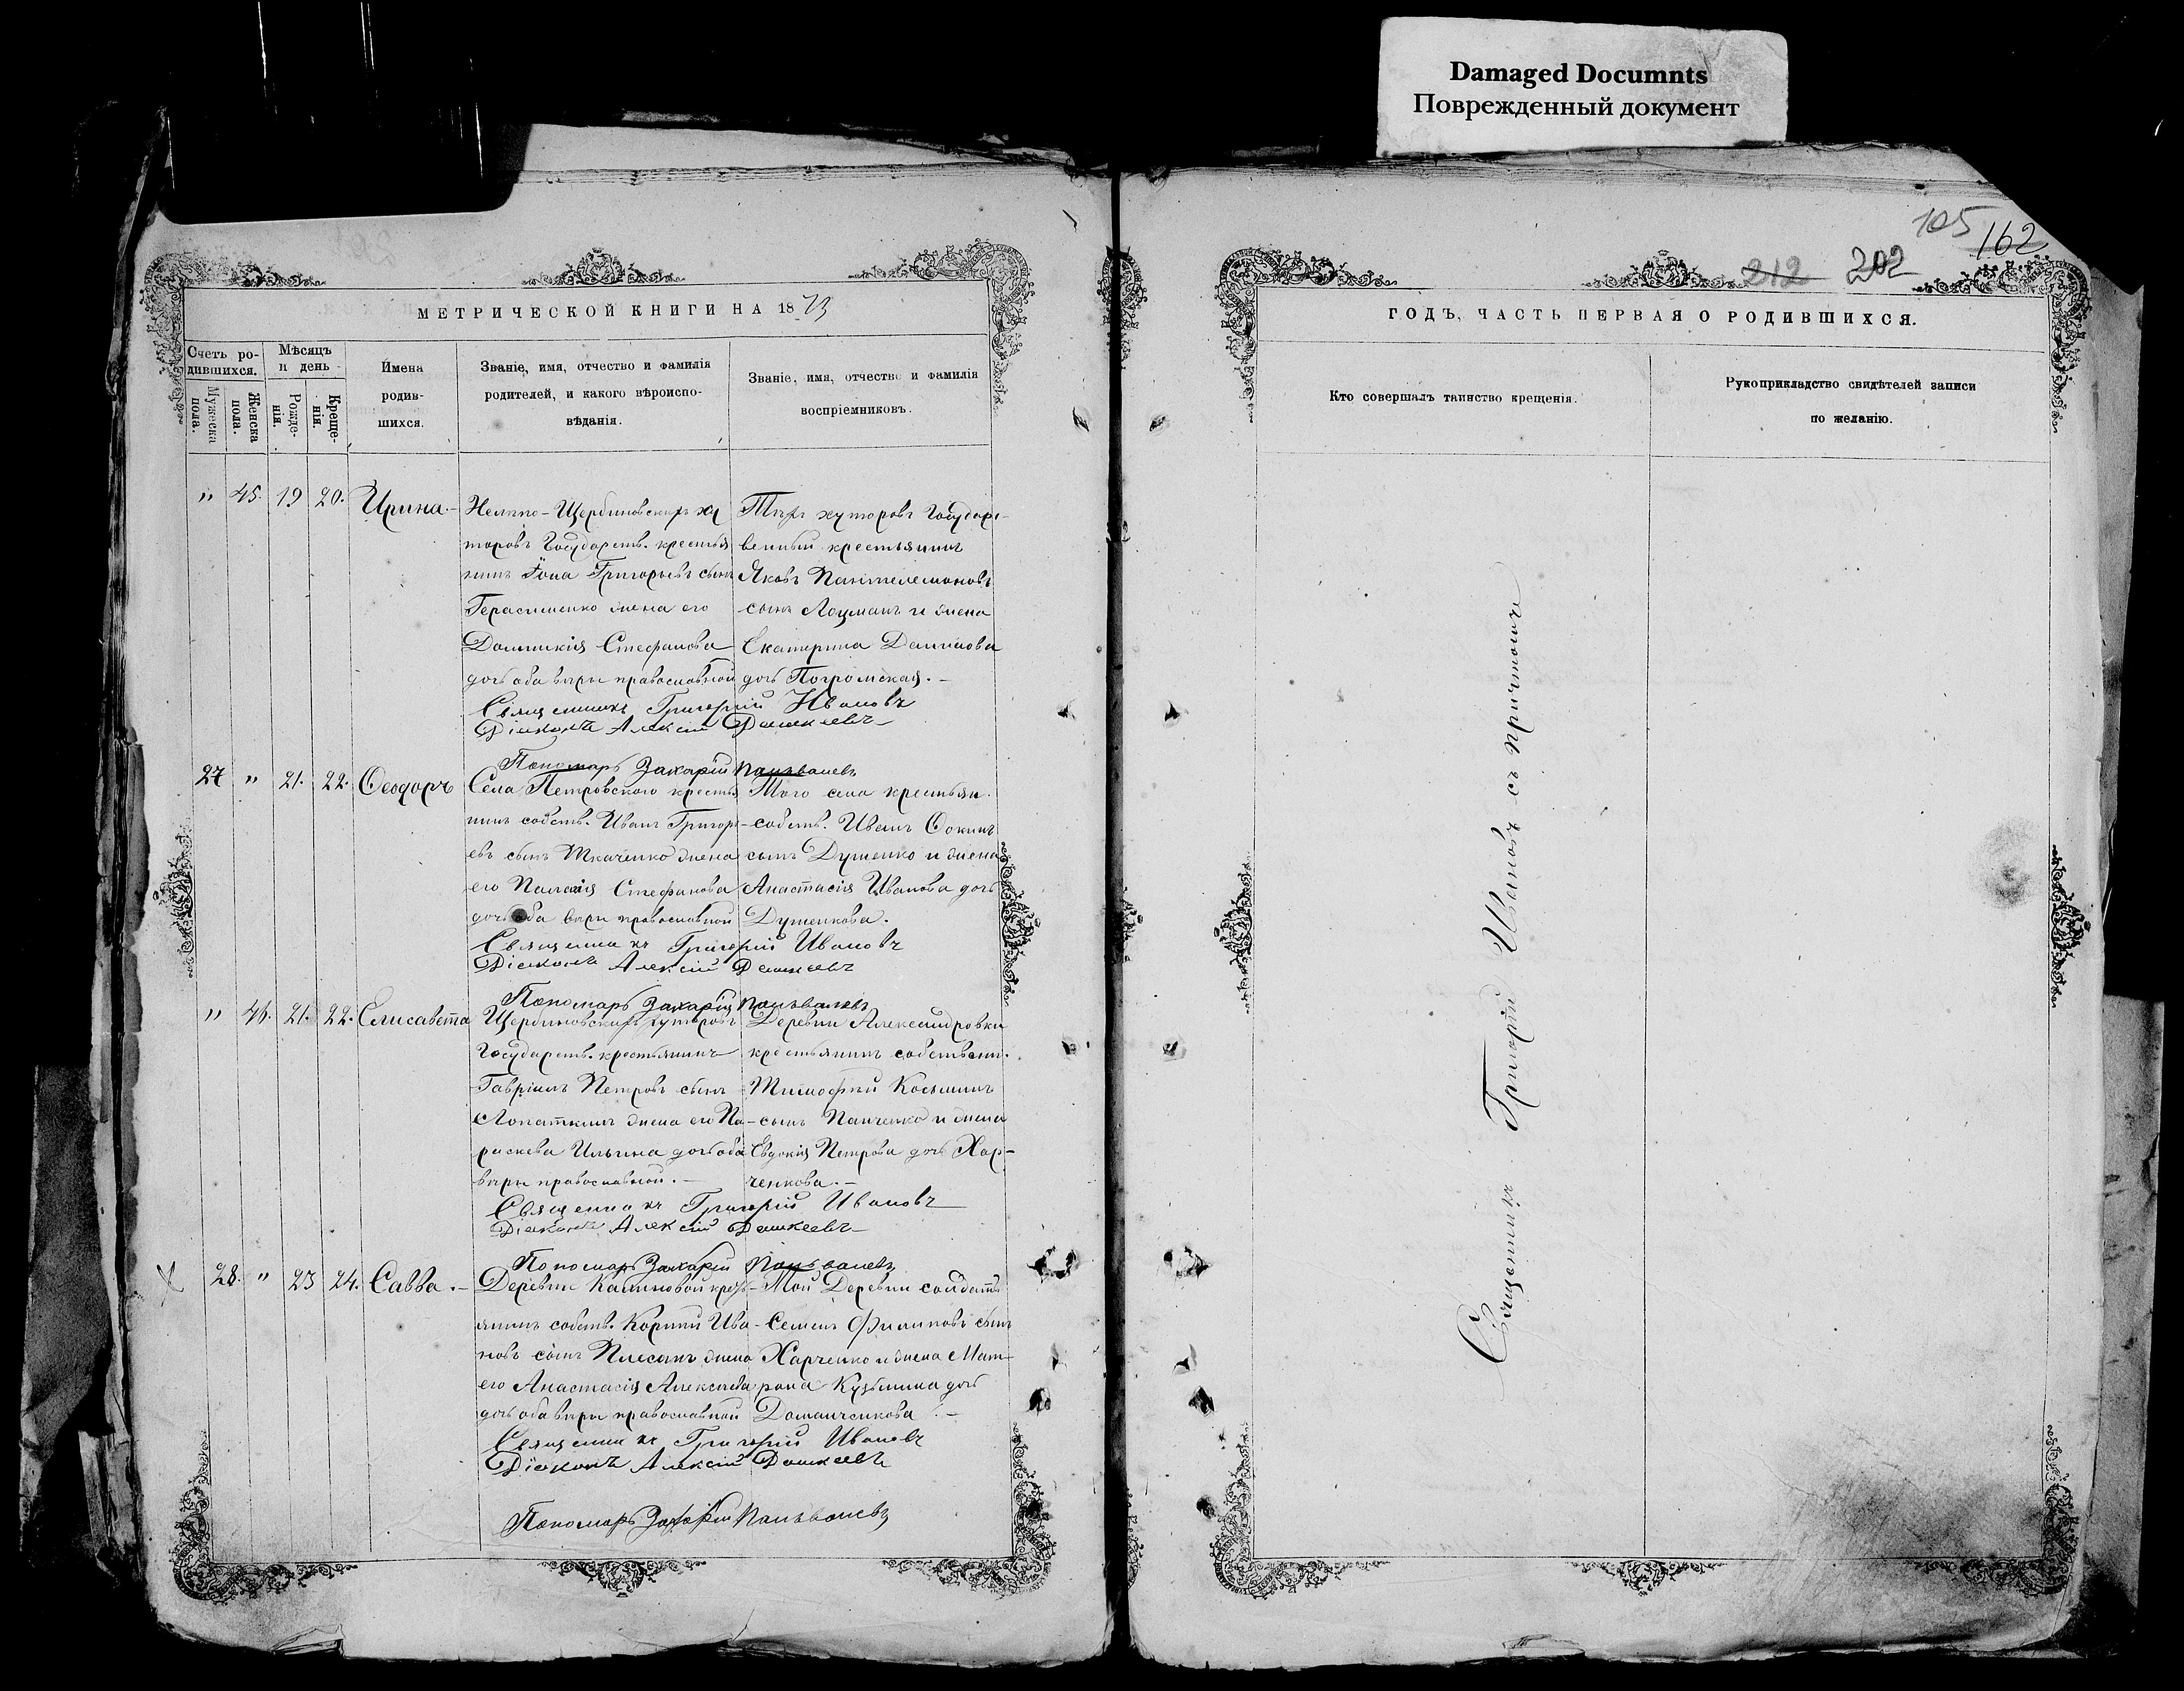 Damaged Documnts
Поврежденный документ
МЕТРИЧЕСКОЙ КНИГИ НА 1873
Счетъ родившихся.
Мужеска пола.
Женска пола.
Мѣсяцъ и день
Рожденія.
Крещенія.
Имена родившихся.
Званіе, имя, отчество и фамилія
родителей, и какого вѣроиспо-
вѣданія.
Званіе, имя, отчество и фамилія
воспріемниковъ.
" 45. 19 20. Ирина.
Щербиновскихъ ху
торовъ Государств. крестья
нинъ Іона Григорьевъ сынъ
Герасименко жена его
Домникія Стефанова
дочь оба вѣры православной
Тѣхъ хуторовъ Государс-
венный крестьянинъ
Яковъ Пантелемоновъ
сынъ Лоцманъ и жена
Екатерина Данилова
дочь Погромская.
Священникъ Григорій Ивановъ
Діаконъ Алексій Дашкеевъ
Пономарь Захарій
27 " 21. 22. Ѳеодоръ
Села Петровского крестья
нинъ собств. Иванъ Григорь-
евъ сынъ Ткаченко жена
его Пелагія Стефанова
дочь оба вѣры православной
Того села крестьян.
собств. Иванъ Ѳокинъ
сынъ Душенко и жена
Анастасія Иванова дочь
Душенкова.
Священникъ Григорій Ивановъ
Діаконъ Алексій Дашкеевъ
Пономарь Захарій
" 46. 21. 22. Елисавета
Щербиновскихъ хуторовъ
Государств. крестьянинъ
Гавріилъ Петровъ сынъ
Лопаткинъ жена его Па-
раскева Ильина дочь оба
вѣры православной.
Деревни Александровки
крестьянинъ собственн.
Тимофѣй Косьминъ
сынъ Панченко и жена
Евдокія Петрова дочь Хар-
ченкова.
Священникъ Григорій Ивановъ
Діаконъ Алексій Дашкеевъ
Пономарь Захарій
28. " 23 24. Савва.
Деревни Калиновой крест-
янинъ собств. Корнѣй Ива-
новъ сынъ Плесканъ жена
его Анастасія Алексѣева
дочь оба вѣры православной
Той Деревни солдатъ
Семенъ Филиповъ сынъ
Харченко и жена Мат-
рона Кузьмина дочь
Доманченкова.
Священникъ Григорій Ивановъ
Діаконъ Алексій Дашкеевъ
Пономарь Захарій
105
162
212 202
ГОДЪ, ЧАСТЬ ПЕРВАЯ О РОДИВШИХСЯ.
Кто совершалъ таинство крещенія.
Рукоприкладство свидѣтелей записи
по желанію.
Священникъ Григорій Ивановъ съ причтомъ